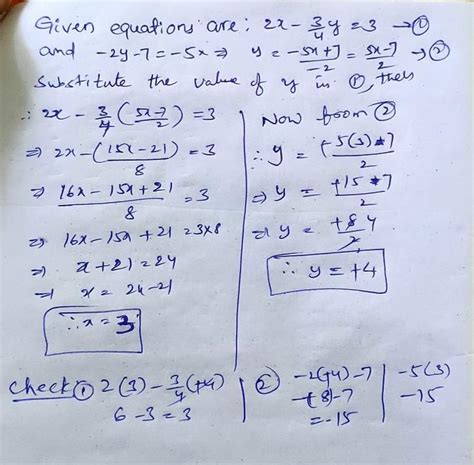 Given equations are: 2x - 3/4 y = 3 → ①
and -2y-7 = -5x ⇒ y = -5x+7/-2 = 5x-7/2 → ②
Substitute the value of y in ①, then
∴ 2x - 3/4 (5x-7/2) = 3
⇒ 2x - (15x-21)/8 = 3
⇒ 16x-15x+21/8 = 3
⇒ 16x-15x+21 = 3x8
⇒ x+21 = 24
⇒ x = 24-21
∴ x = 3
Now from ②
∴ y = +5(3)-7/2
⇒ y = +15-7/2
⇒ y = +8 4/2
∴ y = +4
check ① 2(3) - 3/4 (+4)
6-3 = 3
② -2(+4)-7 | -5(3)
-(8)-7 | -15
= -15